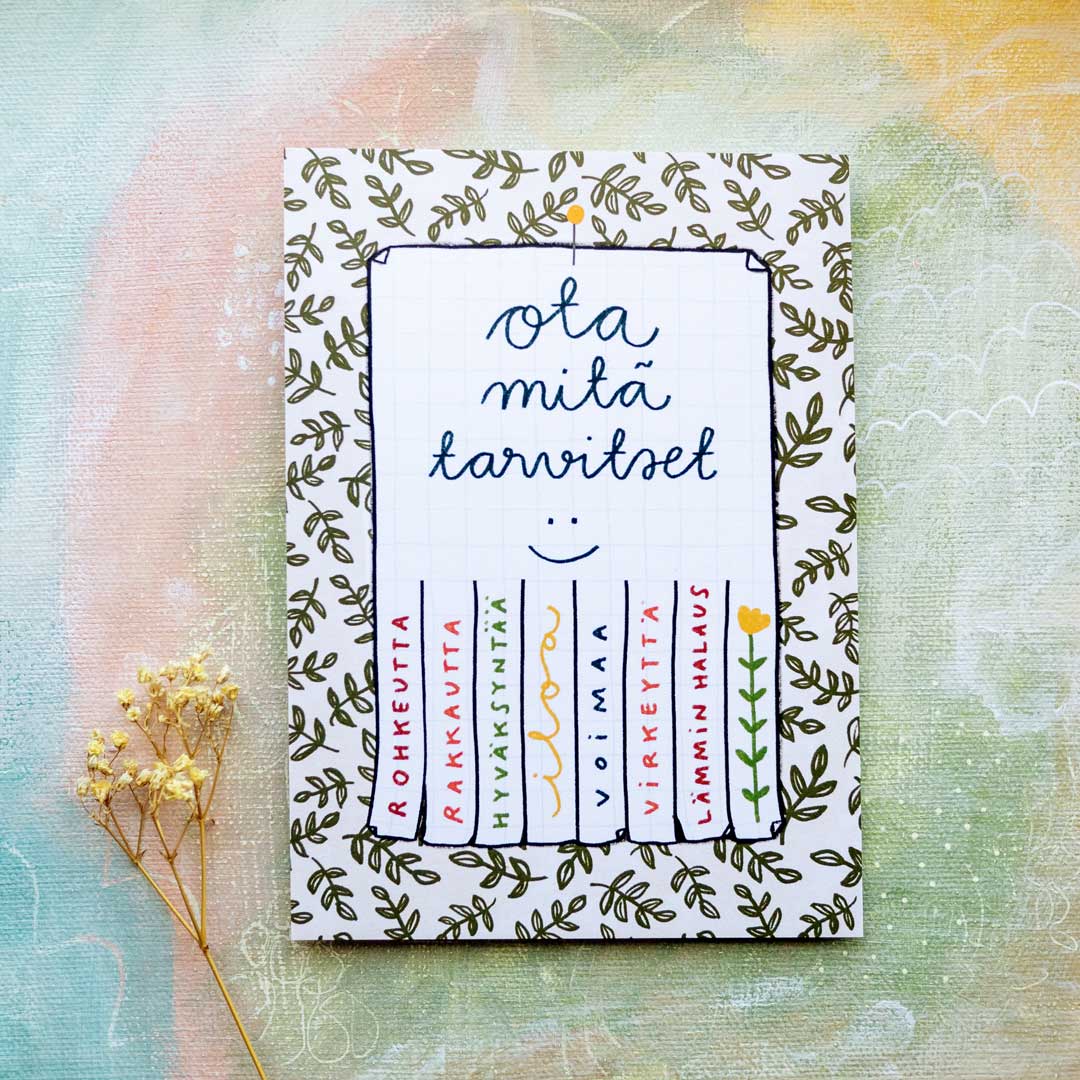 ota
mitä
tarvitset
ROHKEUTTA
RAKKAUTTA
HYVÄKSYNTÄÄ
iloa
VOIMAA
VIRKEYTTÄ
LÄMMIN HALAUS